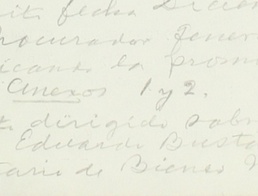 fecha
Procurador Gener
icando la prom
Anexos 1 y 2.
dirigido sobr
Eduardo Busta
tario de Bienes N